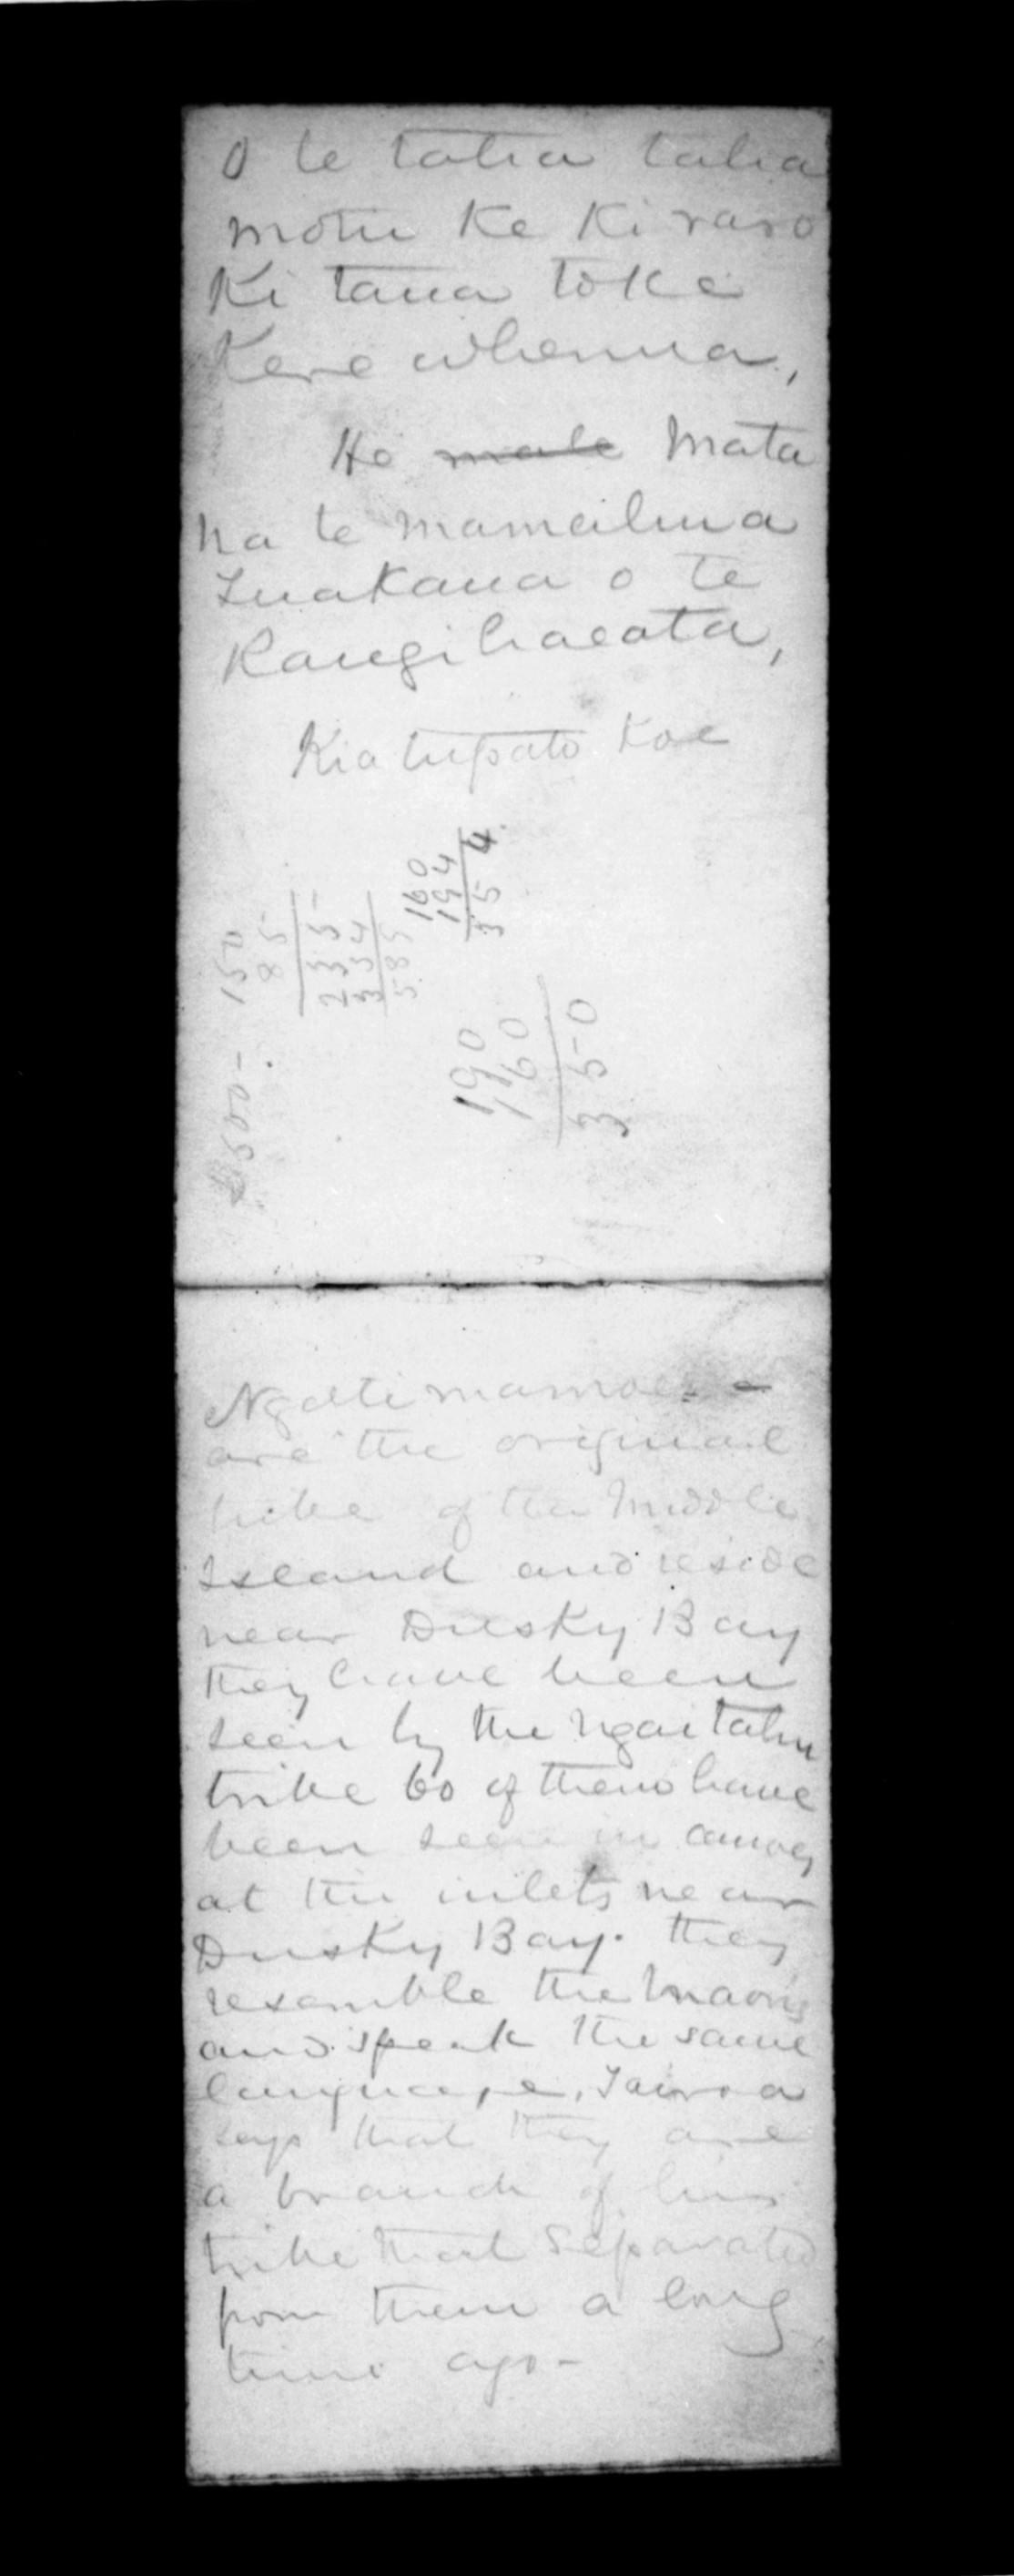 O te tatua tahia
motu Ke Ki raro
Ki taua toka
Kere whenua,
He mate Mata
na te mamaihua
Tuakana o te
Rangihaeata,
Kia tupato koe
160
194
354
150
85
235
354
585
£500-
190
160
350
Ngatimamoe. -
are the original
tribe of the Middle
Island and reside
near Dusky Bay
they have been
seen by the Ngaitahu
tribe 60 of them have
been seen in canoes
at the inlets near
Dusky Bay. they
resemble the Maoris
and speak the same
language, Taiaroa
says that they are
a branch of his
tribe that separated
from them a long
time ago-